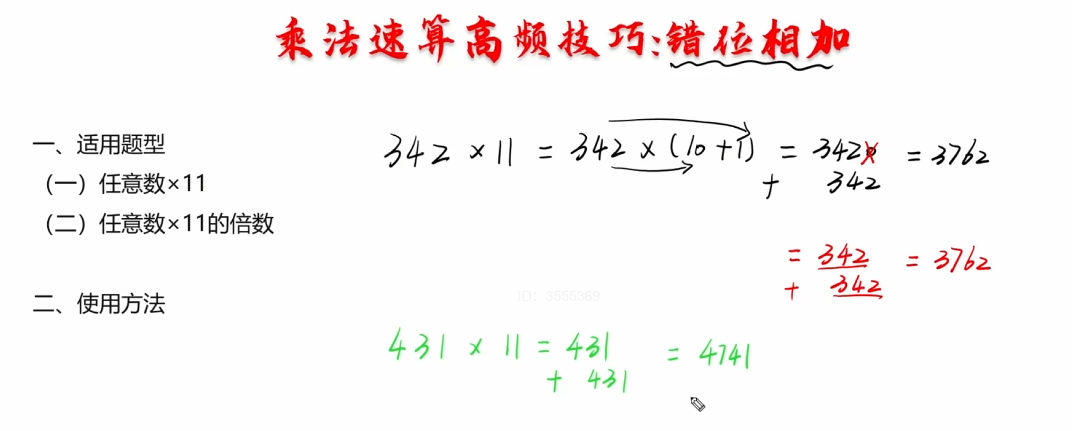 乘法速算高频技巧:错位相加
一、适用题型
（一）任意数×11
（二）任意数×11的倍数
二、使用方法
342 × 11 = 342 × (10+1) = 3420 = 3762
+ 342
= 342 = 3762
+ 342
ID: 3555369
431 × 11 = 431 = 4741
+ 431